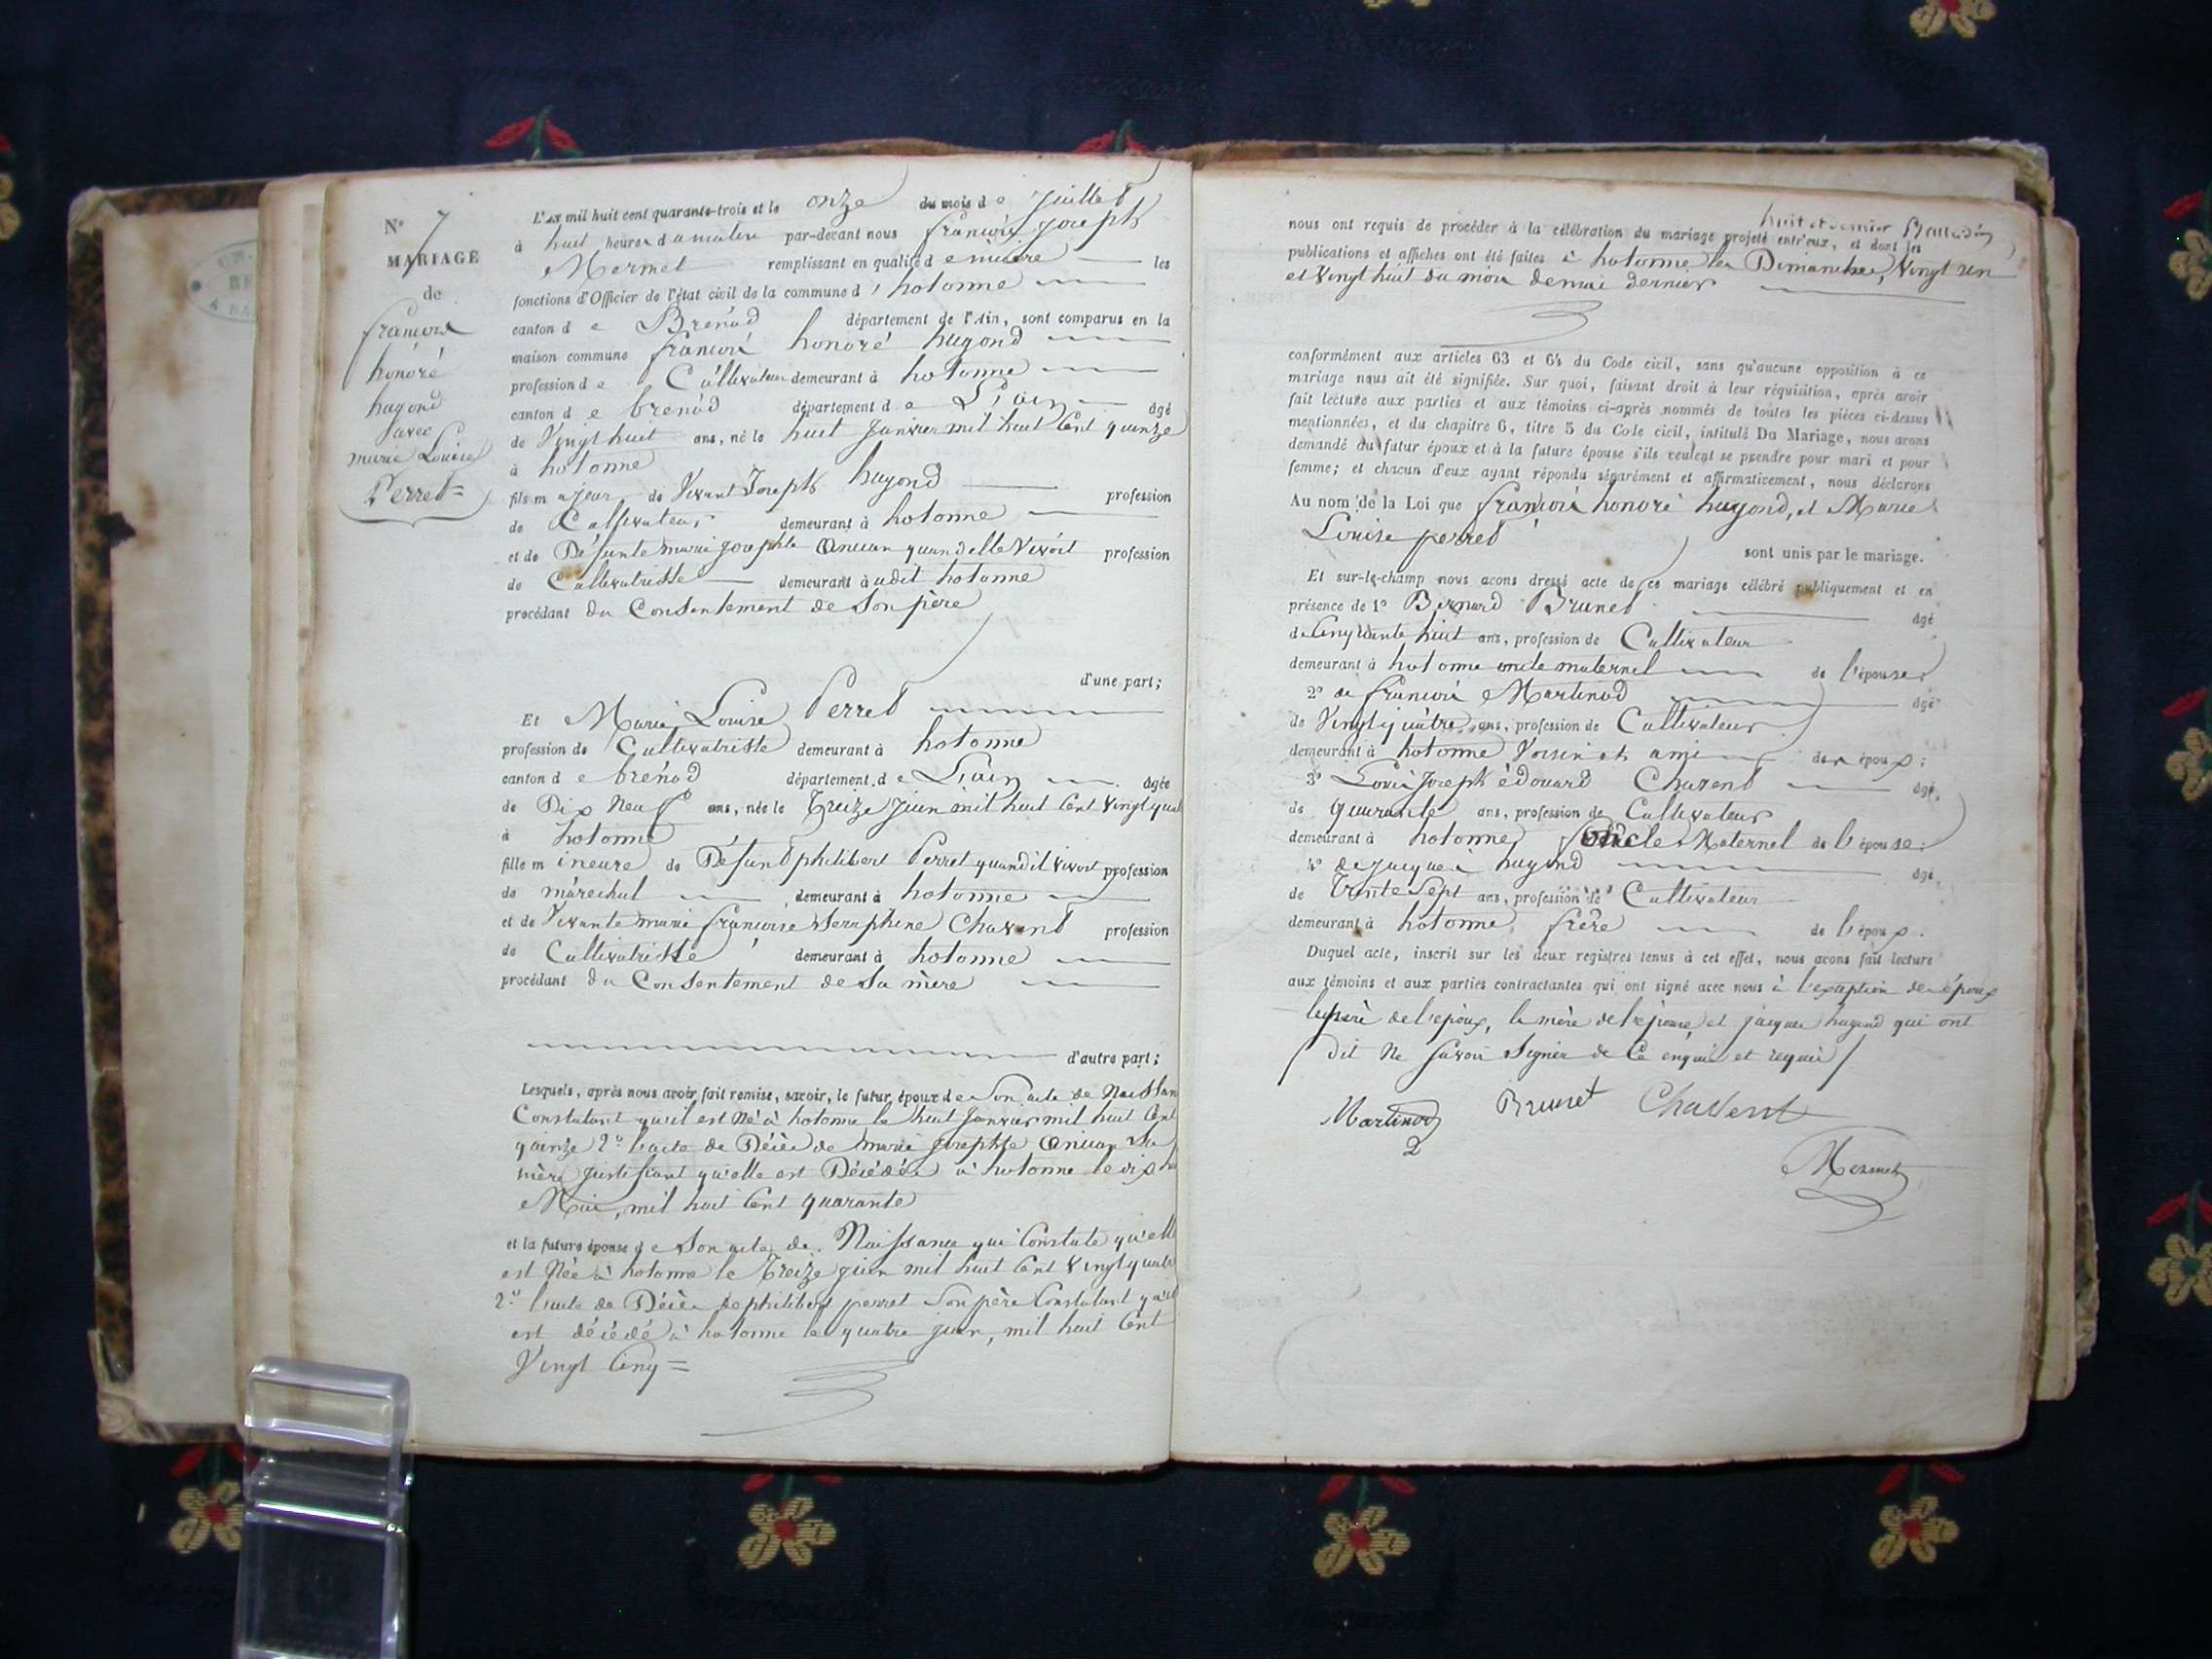 N° 7
MARIAGE
de
françois
honoré
hugond
avec
marie Louise
Perret =
L'an mil huit cent quarante-trois et le onze du mois de Juillet
à huit heures du matin par-devant nous françois joseph
Mermet remplissant en qualité de maire les
fonctions d'Officier de l'état civil de la commune d'hotonne
canton de Brénod département de l'Ain, sont comparus en la
maison commune françois honoré hugond
profession de Cultivateur demeurant à hotonne
canton de brénod département de L'ain âgé
de Vingt huit ans, né le huit Janvier mil huit Cent quinze
à hotonne
fils majeur de Vivant Joseph hugond profession
de Cultivateur demeurant à hotonne
et de Défunte marie josephte quand elle Vivoit profession
de Cultivatrice demeurant audit hotonne
procédant du Consentement de Son père
d'une part;
Et Marie Louise Perret
profession de Cultivatrice demeurant à hotonne
canton de brénod département de L'ain âgée
de Dix Neuf ans, née le Treize Juin mil huit Cent Vingt quat
à hotonne
fille mineure de Défunt philibert Perret quand il vivoit profession
de maréchal demeurant à hotonne
et de Vivante marie françoise Séraphine Chavent profession
de Cultivatrice demeurant à hotonne
procédant du Consentement de Sa mère
d'autre part;
Lesquels, après nous avoir fait remise, savoir, le futur époux de Son acte de Naissan
Constatant qu'il est Né à hotonne le huit Janvier mil huit Cent
quinze 2° l'acte de Décès de marie josephte Sa
mère justifiant qu'elle est Décédée à hotonne le dix
Mai, mil huit Cent quarante
et la future épouse de Son acte de Naissance qui Constate qu'elle
est Née à hotonne le Treize juin mil huit Cent Vingt quatre
2° l'acte de Décès de philibert perret Son père Constatant qu'il
est décédé à hotonne le quatre juin, mil huit Cent
Vingt Cinq =
huit et dernier
nous ont requis de procéder à la célébration du mariage projeté entr'eux, et dont les
publications et affiches ont été faites à hotonne les Dimanches, Vingt un
et Vingt huit du mois de mai dernier
conformément aux articles 63 et 64 du Code civil, sans qu'aucune opposition à ce
mariage nous ait été signifiée. Sur quoi, faisant droit à leur réquisition, après avoir
fait lecture aux parties et aux témoins ci-après nommés de toutes les pièces ci-dessus
mentionnées, et du chapitre 6, titre 5 du Code civil, intitulé Du Mariage, nous avons
demandé au futur époux et à la future épouse s'ils veulent se prendre pour mari et pour
femme; et chacun d'eux ayant répondu séparément et affirmativement, nous déclarons
Au nom de la Loi que françois honoré hugond, et Marie
Louise perret
sont unis par le mariage.
Et sur-le-champ nous avons dressé acte de ce mariage célébré publiquement et en
présence de 1° Bernard Brunet âgé
de Cinquante huit ans, profession de Cultivateur
demeurant à hotonne oncle maternel de l'épouse
2° de françois Martinod âgé
de Vingt quatre ans, profession de Cultivateur
demeurant à hotonne Voisin et ami des époux;
3° Louis Joseph édouard Chavent âgé
de quarante ans, profession de Cultivateur
demeurant à hotonne oncle Maternel de l'épouse;
4° de jacques hugond âgé
de Trente Sept ans, profession de Cultivateur
demeurant à hotonne, frère de l'époux.
Duquel acte, inscrit sur les deux registres tenus à cet effet, nous avons fait lecture
aux témoins et aux parties contractantes qui ont signé avec nous à l'exception des époux
le père de l'époux, la mère de l'épouse, et jacques hugond qui ont
dit Ne savoir Signer de Ce enquis et requis /
Martinod Brunet Chavent
2
Mermet